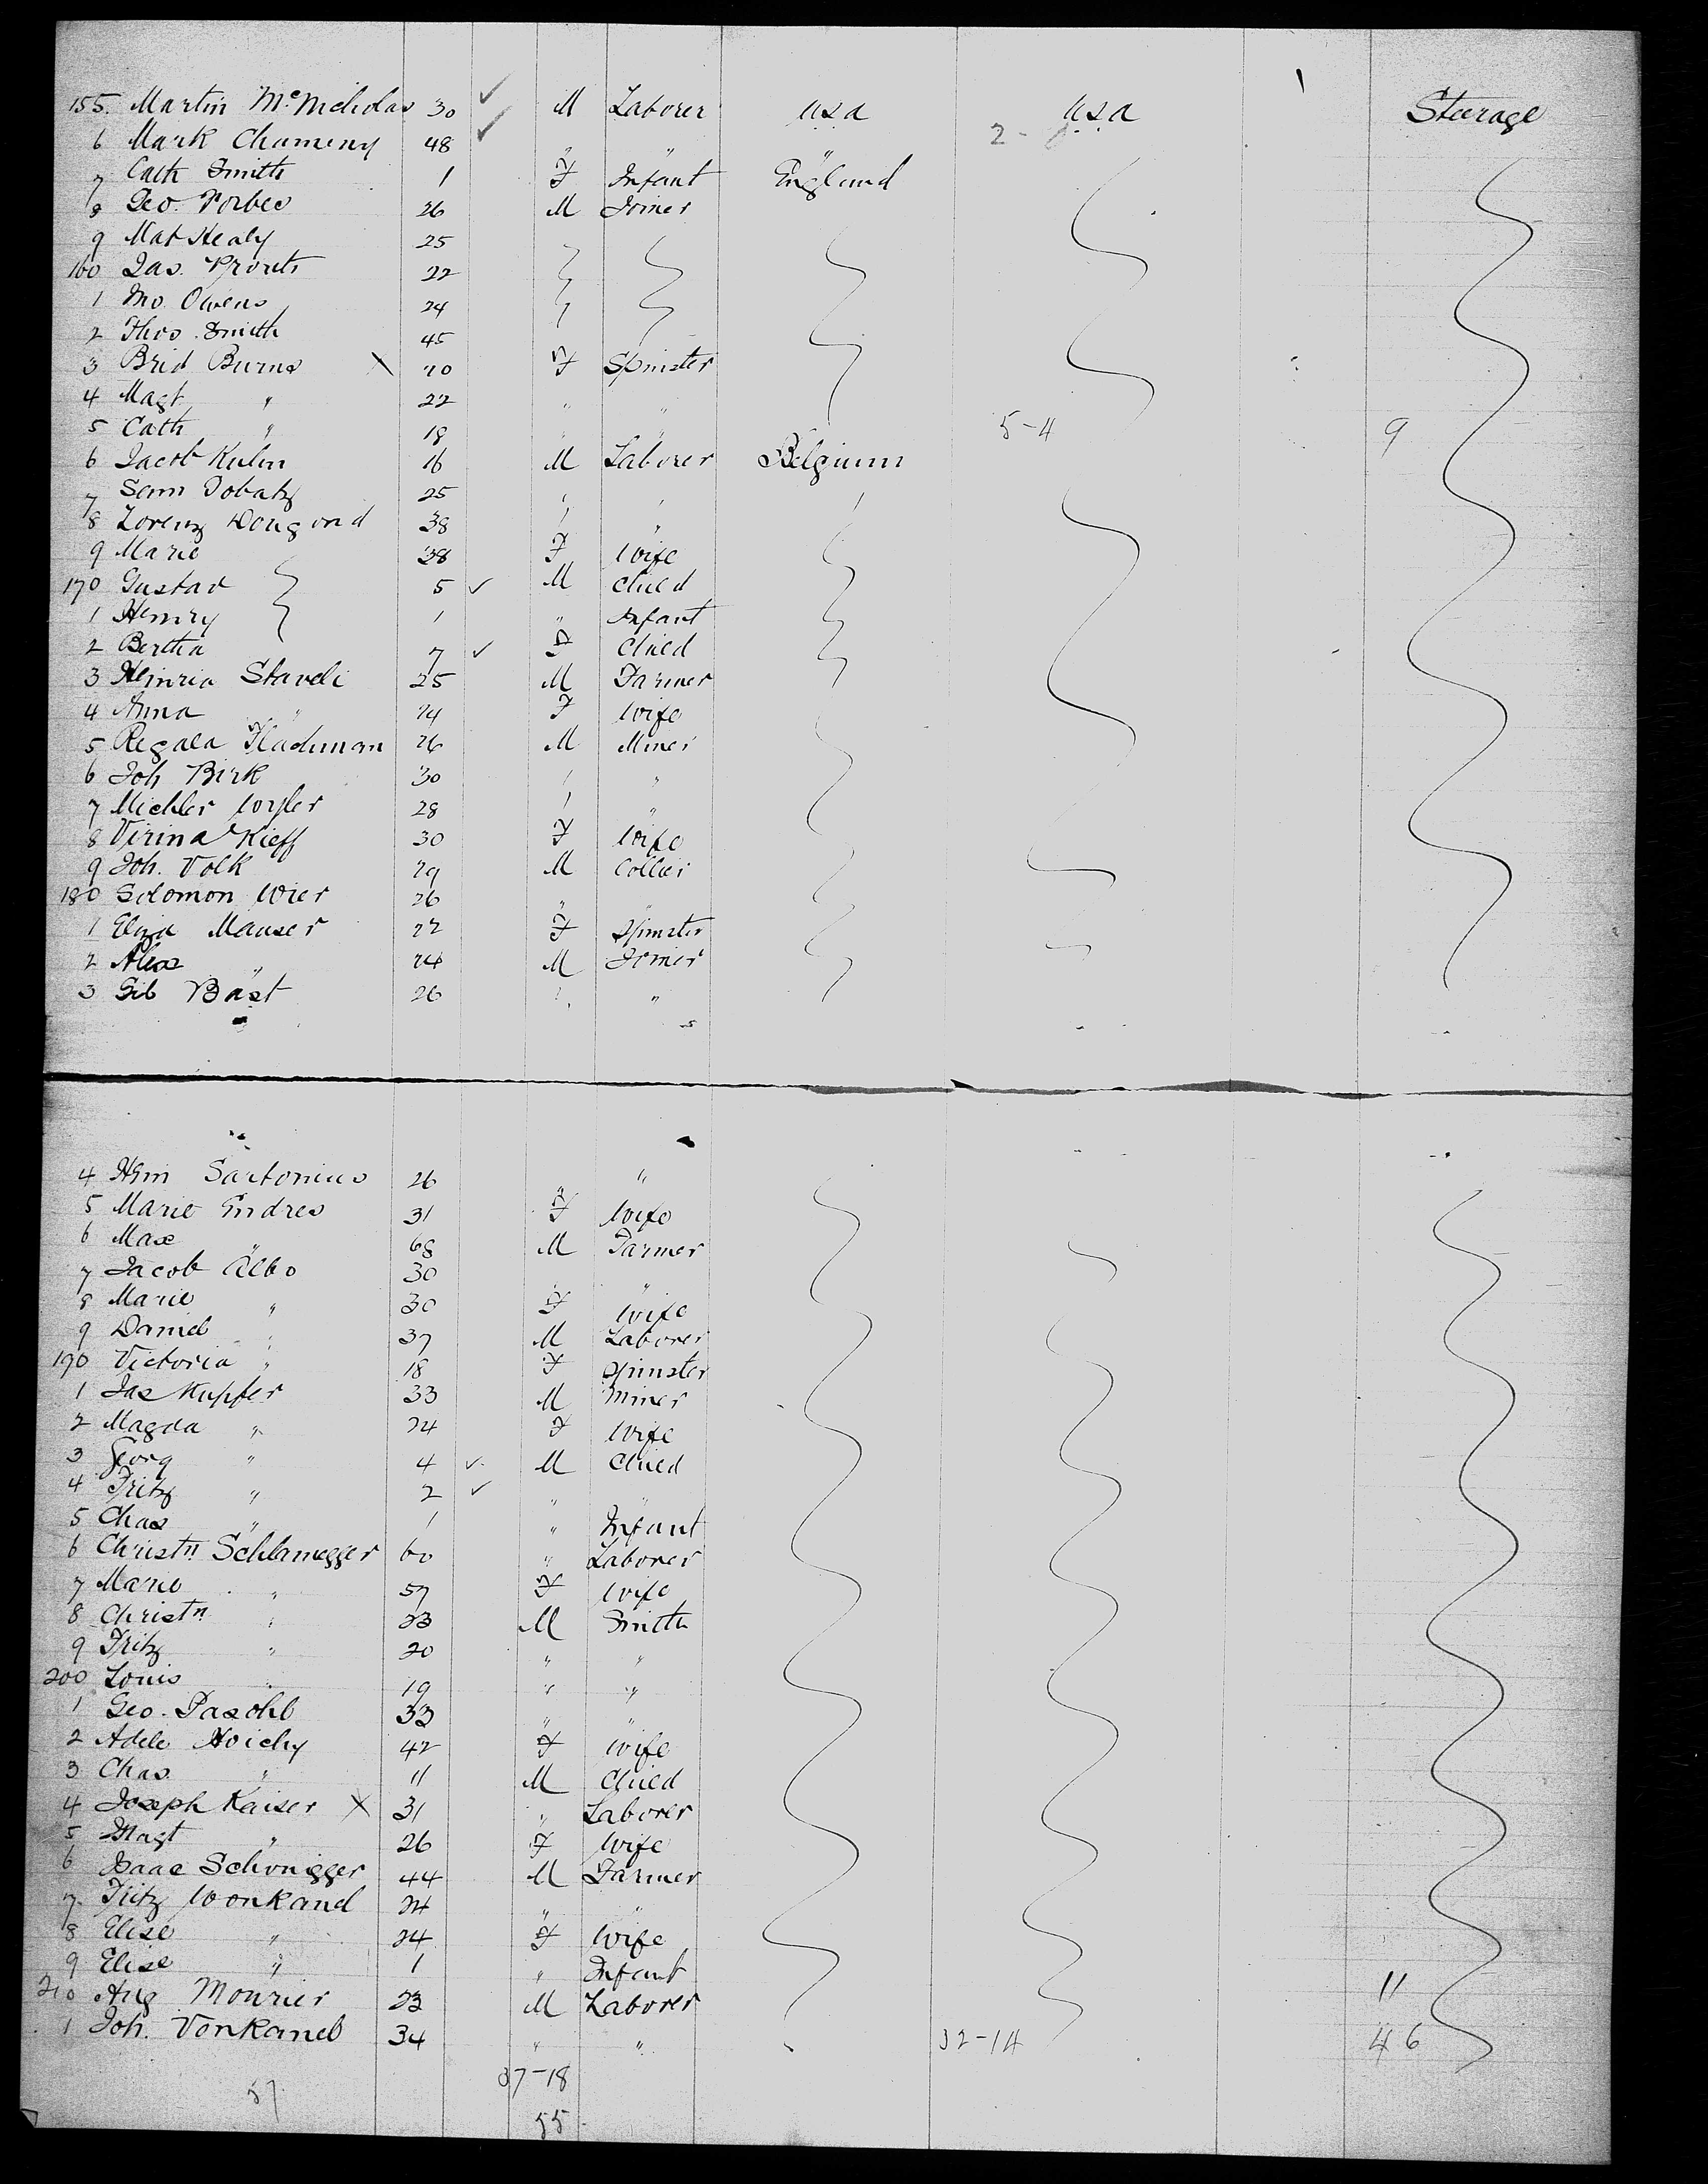 155. Martin McNicholas 30 ✓ M Laborer U.S.A U.S.A Steerage
6 Mark Chumeny 48 ✓ " " " 2-
7 Cath Smith 1 F Infant England
8 Geo. Forbes 26 M Joiner
9 Mat Healy 25
160 Jas. Prouts 22
1 Jno. Owens 24
2 Thos. Smith 45
3 Brid Burns X 20 F Spinster
4 Magt " 22 " "
5 Cath " 18 " " 5-4 9
6 Jacob Kuhn 16 M Laborer Belgium
7 Sam Dobatz 25 " "
8 Lorenz Dougond 38 " "
9 Marie 38 F Wife
170 Gustav 5 ✓ M Child
1 Henry 1 " Infant
2 Bertha 7 ✓ F Child
3 Heinric Staveli 25 M Farmer
4 Anna " 24 F Wife
5 Regala Flachman 26 M Miner
6 Joh Birk 30 " "
7 Michler Wyler 28 " "
8 Virina Kieff 30 F Wife
9 Joh. Volk 29 M Collier
180 Solomon Wier 26 " "
1 Eliza Mauser 22 F Spinster
2 Alex " 24 M Joiner
3 Gib Bast 26 " "
4 Hrm Sartorius 26 " "
5 Marie Endres 31 F Wife
6 Max " 68 M Farmer
7 Jacob Albo 30 " "
8 Marie " 30 F Wife
9 Daniel " 37 M Laborer
190 Victoria " 18 F Spinster
1 Jas Kupfer 33 M Miner
2 Magda " 24 F Wife
3 Georg " 4 ✓ M Child
4 Fritz " 2 ✓ " "
5 Chas " 1 " Infant
6 Christn Schlamegger 60 " Laborer
7 Marie " 57 F Wife
8 Christn " 23 M Smith
9 Fritz " 20 " "
200 Louis " 19 " "
1 Geo. Paschl 33 " "
2 Adele Hoichy 42 F Wife
3 Chas. " 11 M Child
4 Joseph Kaiser X 31 " Laborer
5 Magt " 26 F Wife
6 Isaac Schonigger 44 M Farmer
7 Fritz Wonkand 24 " "
8 Elise " 24 F Wife
9 Elise " 1 " Infant
210 Aug Mounier 23 M Laborer 11
1 Joh. Vonkaneb 34 " " 32-14 46
37-18
57
55